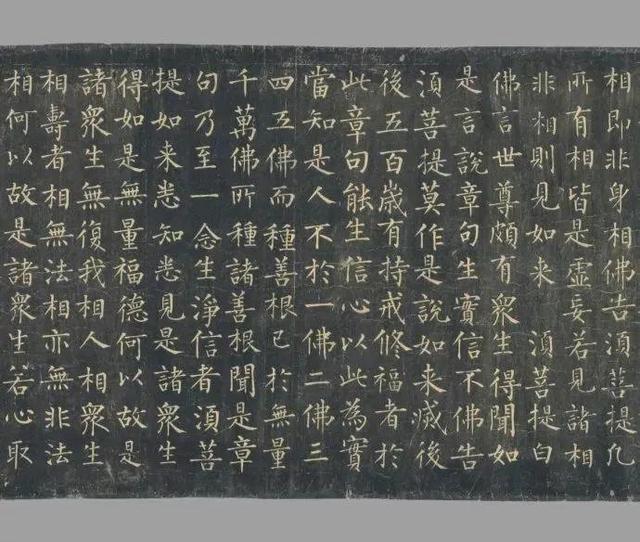 相即非身相佛告須菩提凡
所有相皆是虛妄若見諸相
非相則見如来　須菩提白
佛言世尊頗有衆生得聞如
是言說章句生實信不佛告
須菩提莫作是說如来滅後
後五百歳有持戒修福者於
此章句能生信心以此為實
當知是人不於一佛二佛三
四五佛而種善根已於無量
千萬佛所種諸善根聞是章
句乃至一念生淨信者須菩
提如来悉知悉見是諸衆生
得如是無量福德何以故是
諸衆生無復我相人相衆生
相壽者相無法相亦無非法
相何以故是諸衆生若心取